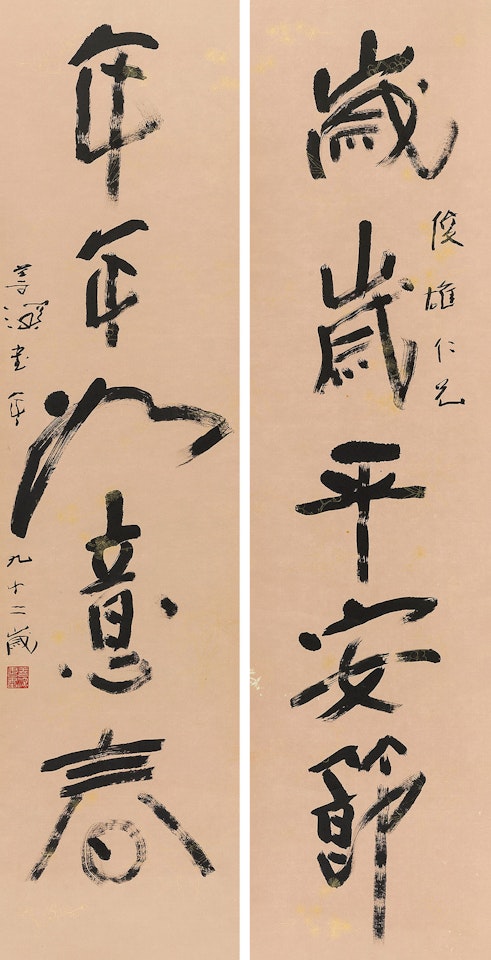 歲歲平安節
俊雄仁兄
年年如意春
善深書年九十二歲